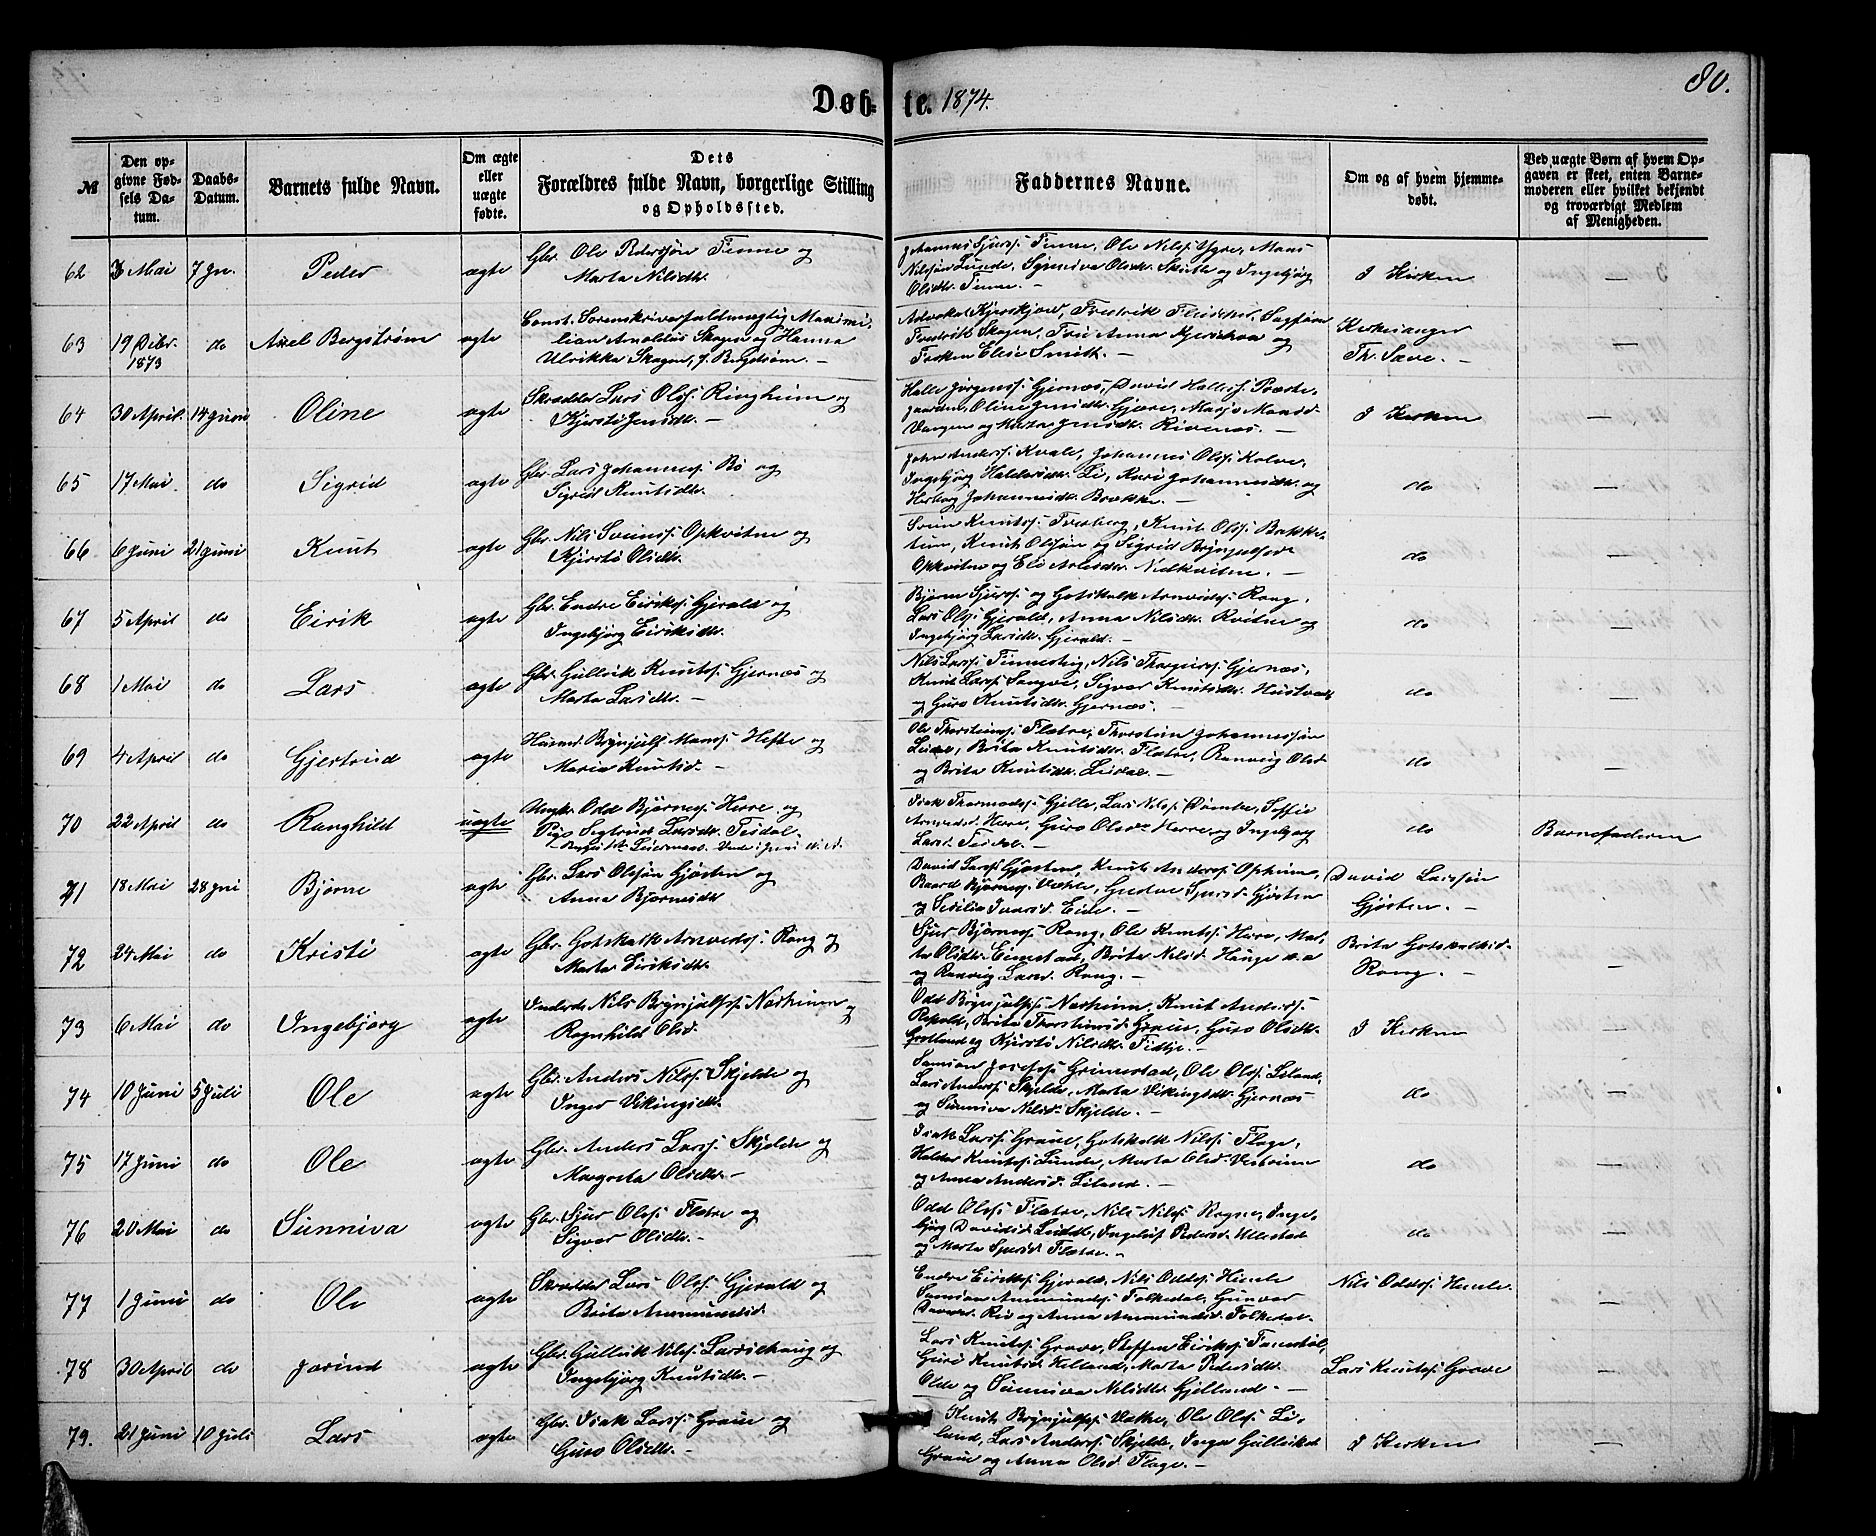 80.
Døbte. 1874.
№
Den opgivne Fødsels Datum.
Daabs-Datum.
Barnets fulde Navn.
Om ægte eller uægte fødte.
Dets Forældres fulde Navn, borgerlige Stilling og Opholdssted.
Faddernes Navne.
Om og af hvem hjemmedøbt.
Ved uægte Børn af hvem Opgaven er skeet, enten Barnemoderen eller hvilket bekjendt og troværdigt Medlem af Menigheden.
62 3 Mai 7 Jn. Peder ægte Gbr. Ole Pedersøn Finne og
Marta Nilsdtr.
Johannes Sjurss. Finne, Ole Nilss. Ygre, Mons
Nilssøn Lunde, Synneva Olsdtr. Skutle og Ingebjørg
Olsdtr. Finne. —
I Kirken —
63 19 Debr. 1873 do Axel Bergstrøm ægte Const. Sorenskriverfuldmægtig Maximi-
lian Arnoldus Skagen og Hanna
Ulrikka Skagen, f. Bergstrøm. —
Advokat Fredrik Fleischer,
Fredrik Skagen, Frue Anna og
Frøken Elise Smith. —
Kirkesanger
Th. Sæve. — —
64 30 April. 14 Juni Oline ægte Skrædder Lars Olss. Ringheim og
Kjersti Jensdtr. —
Halle Jørgenss. Gjernæs, David Halless. Præste-
gaarden, Oline Jensdtr. Gjære, Marjo Monsd.
Vangen og Marta Jensdtr. Rivenæs. —
I Kirken —
65 17 Mai do Sigrid ægte Gbr. Lars Johanness. Bø og
Sigrid Knutsdtr.
John Anderss. Kvale, Johannes Olss. Kolve,
Ingebjørg Haldorsdtr. Li, Kari Johannesdtr. og
Herborg Johannesdtr. Brække. —
do —
66 6 Juni 21 Juni Knut ægte Gbr. Nils Sveinss. Opkvitne og
Kjersti Olsdtr.
Svein Knutss. Tverberg, Knut Olss. Bakke-
tun, Knut Olssøn og Sigrid Brynjulfsdr
Opkvitne og Eli Nedkvitne. —
do —
67 5 April do Eirik ægte Gbr. Endre Eirikss. Gjerald og
Ingebjørg Eiriksdtr.
Bjørn Sjurss. og Gotskalk Arnvidss. Rong,
Lars Olss. Gjerald, Anna Nilsdtr. Kvitne og
Ingebjørg Larsdtr. Gjerald. —
do —
68 1 Mai do Lars ægte Gbr. Gullvik Knutss. Gjernæs og
Marta Larsdtr. —
Nils Larss. Finnestig, Nils Thorgeirss. Gjernæs,
Knut Larss. Sonve, Sigvor Knutsdtr.
og Guro Knutsdtr. Gjernæs. —
do —
69 4 April do Gjertrud ægte Husmd. Brynjulf Monss. Hefte og
Maria Knutsd. —
Ole Thorsteinss. Flatre, Thorstein Johannessøn
Brita Knutsdtr. Flatre, Ranveig Olsd.
og Brita Knutsdtr. Leidal. —
do —
70 22 April do Ranghild uægte Ungk. Odd Bjørness. Herre og
Pige Sigtrud Larsdtr. Tesdal.
Isak Thormodss. Gjelle, Lars Nilss. Dømbe, Soffie
Arnvidsd. Herre, Guro Olsdtr Herre og Ingebjørg
Larsd. Tesdal. —
do Barnefaderen
71 18 Mai 28 Jni Bjørne ægte Gbr. Lars Olssøn Gjøstein og
Anna Bjørnesdtr
David Larss. Gjøstein, Knut Anderss. Opheim,
Baard Bjørness. Væthe, Gudve Sjursd. Gjøstein
og Sesilia Ivarsd. Eide. —
David Larssøn
Gjøstein. — —
72 24 Mai do Kristi ægte Gbr. Gotskalk Arnvidss. Rong og
Marta Eiriksdtr.
Sjur Bjørness. Rong, Ole Knutss. Herre, Mar-
ta Olsdtr. Eimstad, Brita Nilsd. Hauge
og Ranvig Larsd. Rong. —
Brita Gotskalksd.
Rong. — —
73 6 Mai do Ingebjørg ægte Inderste Nils Brynjulfss. Nesheim og
Ragnhild Olsd.
Odd Brynjulfss. Nesheim, Knut Anderss.
Brita Thorsteinsd. Graue, Guro Olsdtr.
og Kjersti Nilsdtr. —
I Kirken —
74 10 Juni 5 Juli Ole ægte Gbr. Anders Nilss. Skjelde og
Inger Vikingsdtr.
Samson Josefss. Grimestad, Ole Olss. Liland,
Lars Anderss. Skjelde, Marta Vikingsdtr. Gjernæs
og Sunniva Nilsd. Skjelde. —
do —
75 17 Juni do Ole ægte Gbr. Anders Larss. Skjelde og
Margreta Olsdtr. —
Isak Larss. Graue, Gotskalk Nilss. Flage,
Haldor Knutss. Lunde, Marta Olsd.
og Anna Andersd. Liland. —
do —
76 20 Mai do Sunniva ægte Gbr. Sjur Olss. Flatre og
Sigvor Olsdtr. —
Odd Olss. Flatre, Nils Nilss. Rogne, Inge-
bjørg Davidsd. Ingeleif Pedersd. Ullestad
og Marta Sjursd. Flatre. —
do —
77 1 Juni do Ole ægte Skrædder Lars Olss. Gjerald og
Brita Amundsd.
Endre Eirikss. Gjerald, Nils Oddss. Himle
Samson Amundss. Folkedal, Gunvor
Rio og Anna Amundsd. Folkedal. —
Nils Oddss. Himle. —
78 30 April do Jorind ægte Gbr. Gullvik Nilss. Larsehaug og
Ingebjørg Knutsdtr. —
Lars Knutss. Grove, Steffen Eirikss.
Guri Knutsd. Helland, Marta Pedersdtr.
Olde og Sunniva Nilsdtr. Gjelland. —
Lars Knutss. Grove —
79. 21 Juni 10 Juli Lars ægte Gbr. Isak Larss. Graue og
Guro Olsdtr. —
Knut Brynjulfss. Væthe, Ole Olss. Li-
land, Lars Anderss. Skjelde, Inga Gulleiksd.
Graue og Anna Olsd. Flage. —
I Kirken —